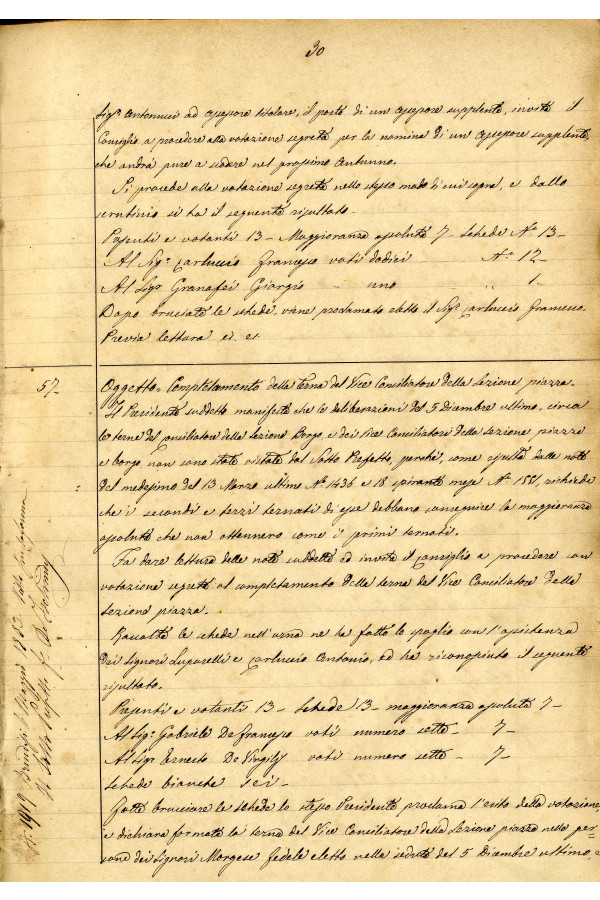 30
Sig.r Antonucci ad assessore titolare, il posto di un assessore supplente, invita il
Consiglio a procedere alla votazione segreta per la nomina di un assessore supplente,
che andrà pure a scadere nel prossimo Autunno.
Si procede alla votazione segreta nello stesso modo di cui sopra, e dallo
scrutinio si ha il seguente risultato.
Presenti e votanti 13 - Maggioranza assoluta 7 - Schede N.o 13 -
Al Sig.r Carluccio Francesco voti dodici - N.o 12 -
Al Sig.r Granafei Giorgio " uno " 1 -
Dopo bruciate le schede, viene proclamato eletto il Sig.r Carluccio Francesco.
Previa lettura ec. ec.
57 -
Oggetto = Completamento della terna del Vice Conciliatore della Sezione piazza.
Il Presidente suddetto manifesta che le deliberazioni del 5 Dicembre ultimo, circa
le terne del Conciliatore della Sezione Borgo, e dei Vice Conciliatori della Sezione piazza
e borgo, non sono state vistate dal Sotto Prefetto, perchè, come risulta dalle note
del medesimo del 13 Marzo ultimo N.o 1436 e 18 spirante mese N.o 1881, richiede
che i secondi e terzi ternati di esse debbano conseguire la maggioranza
assoluta che non ottennero come i primi ternati.
Fa dare lettura delle note suddette ed invita il Consiglio a procedere con
votazione segreta al completamento della terna del Vice Conciliatore della
Sezione piazza.
Raccolte le schede nell'urna ne ha fatto lo spoglio con l'assistenza
dei Signori Luparelli e Carluccio Antonio, ed ha riconosciuto il seguente
risultato.
Presenti e votanti 13 - Schede 13 - maggioranza assoluta 7 -
Al Sig.r Gabriele De Francesco voti numero sette - 7 -
Al Sig.r Ernesto De Virgilj voti numero sette - 7 -
Schede bianche sei -
Fatte bruciare le schede lo stesso Presidente proclama l'esito della votazione
e dichiara formata la terna del Vice Conciliatore della Sezione piazza nelle per-
sone dei Signori Morgese Fedele eletto nella seduta del 5 Dicembre ultimo, e
N. 1919 Brindisi 1 Maggio 1882
Il Sotto Prefetto